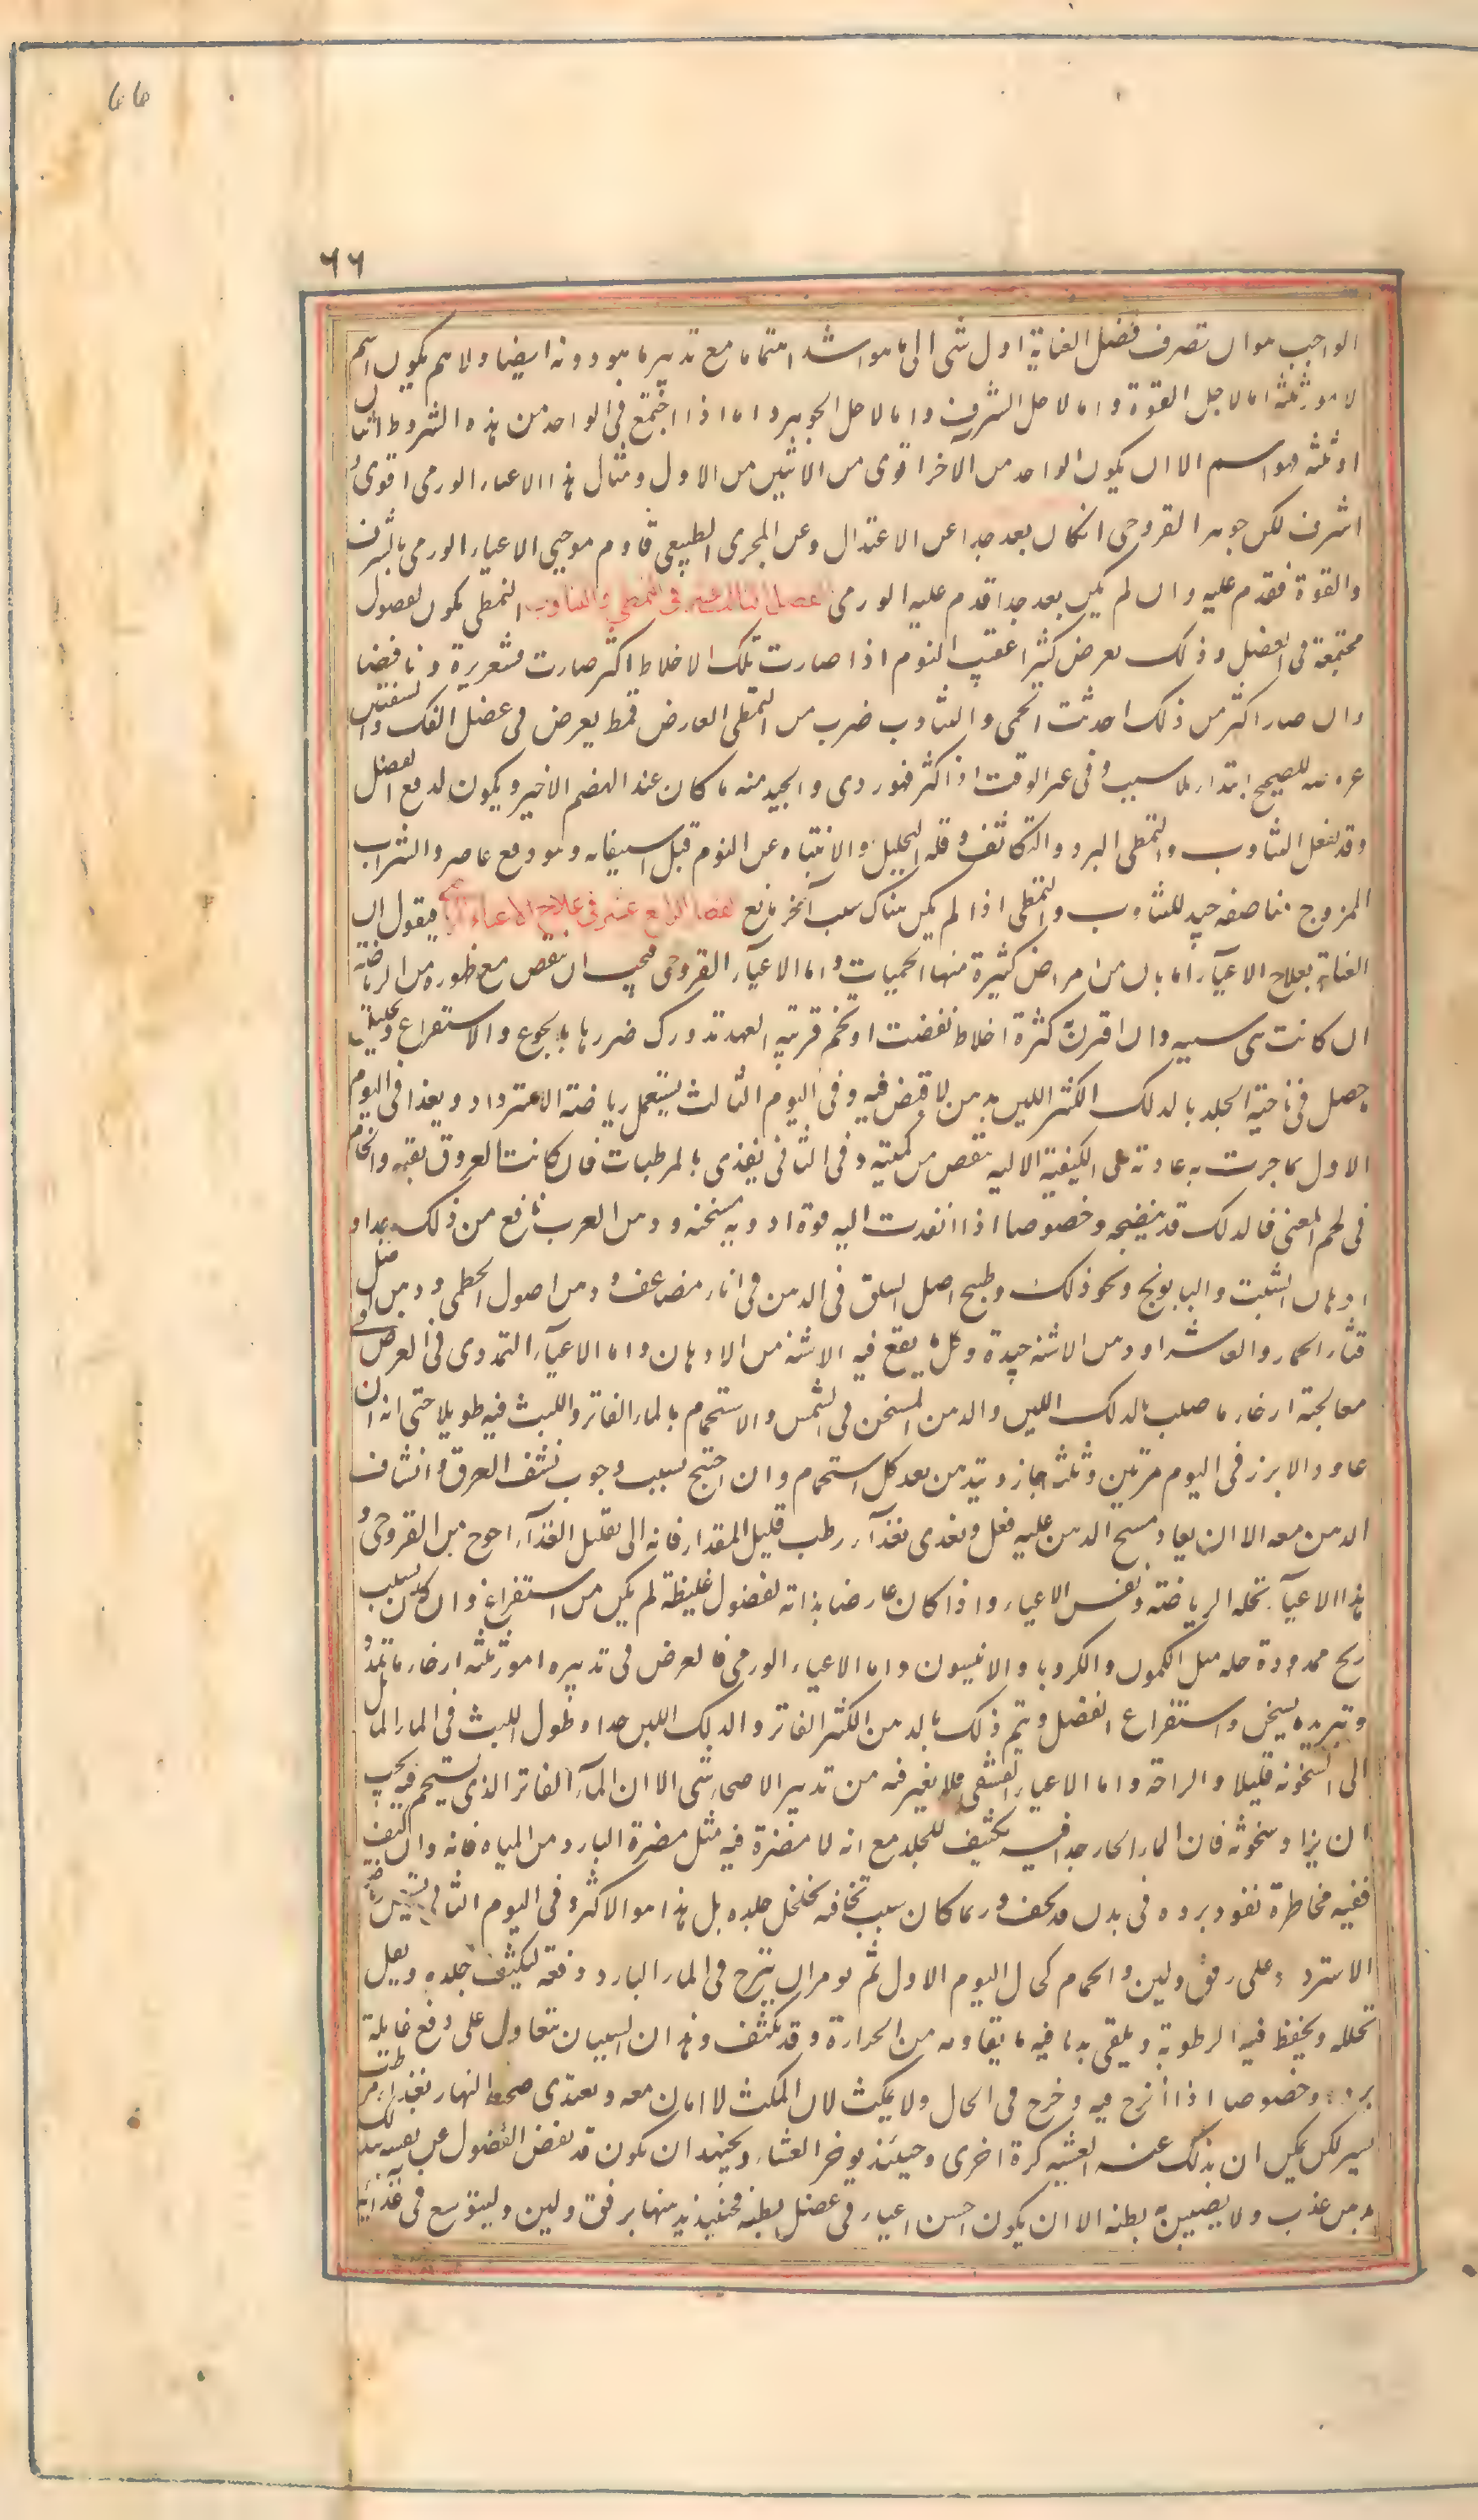 66
٦٦
الواجب هو ان تصرف فضل العناية اول شى الى ما هو اشد اهتماما مع تدبير ما هو دونه ايضا ولاهم يكون اهم
لامور ثلثة اما لاجل القوة واما لاجل الشرف واما لاجل الجوهر واما اذا اجتمع فى الواحد من هذه الشروط اثنان
او ثلثة فهو اهم الا ان يكون الواحد من الآخر اقوى من الاثنين من الاول ومثال هذا الاعياء الورمى اقوى و
اشرف لكن جوهر القروحى انكان بعد جدا عن الاعتدال وعن المجرى الطبيعى قاوم موجبى الاعياء الورمى بالشرف
والقوة فقدم عليه وان لم يكن بعد جدا قدم عليه الورمى الفصل الثالث عشر فى التمطى والتثاوب التمطى يكون لفضول
مجتمعة فى العضل وذلك يعرض كثيرا عقيب النوم اذا صارت تلك الاخلاط اكثر صارت قشعريرة ونافضا
وان صار اكثر من ذلك احدثت الحمى والتثاوب ضرب من التمطى العارض قمط يعرض فى عضل الفك والشفتين
عروضه للصحيح ابتداء بلا سبب وفى غير الوقت اذا كثر فهو ردى والجيد منه ما كان عند الهضم الاخير ويكون لدفع الفضل
وقد يفعل التثاوب والتمطى البرد والتكاثف وقلة التحليل والانتباه عن النوم قبل استيفائه وهو دفع عاصر والشراب
الممزوج مناصفة جيد للتثاوب والتمطى اذا لم يكن هناك سبب آخر مانع الفصل الرابع عشر فى علاج الاعياء فيقول ان
العناية بعلاج الاعياء امان من امراض كثيرة منها الحميات واما الاعياء القروحى فيجب ان ينقص مع ظهوره من الرياضة
ان كانت هى سببه وان اقترن كثرة اخلاط نفضت او تخم قريبة العهد تدورك ضررها بالجوع والاستفراغ وتحليل
ما حصل فى ناحية الجلد بالدلك الكثير اللين بدهن لا قبض فيه وفى اليوم الثالث يستعمل رياضة الاسترداد ويغذا فى اليوم
الاول بما جرت به عادته على الكيفية الا انه ينقص من كميته وفى الثانى يغذى بالمرطبات فان كانت العروق نقية والخام
فى لحم المعنى فالدلك قد ينضجه وخصوصا اذا انفدت اليه قوة ادوية مسخنة ودهن الغرب نافع من ذلك جدا و
ادهان الشبت والبابونج ونحو ذلك وطبيخ اصل السلق فى الدهن فى اناء مضاعف ودهن اصول الخطمى ودهن اصل
قثاء الحمار والفاشرا ودهن الاشنة جيدة وكل ما يقع فيه الاشنة من الادهان واما الاعياء التمددى فالغرض فى
معالجته ارخاء ما صلب بالدلك اللين والدهن المسخن فى الشمس والاستحمام بالماء الفاتر واللبث فيه طويلا حتى انه ان
عاود الابزن فى اليوم مرتين وثلثة جاز ويتدهن بعد كل استحمام وان احتيج بسبب وجوب نشف العرق وانتشاف
الدهن معه الا ان يعاد مسح الدهن عليه فعل ويغدى بغذاء رطب قليل المقدار فانه الى تقليل الغذاء احوج من القروحى و
هذا الاعياء تحله الرياضة ونفس الاعياء واذا كان عارضا بذاته لفضول غليظة لم يكن من استفراغ وان كان بسبب
ريح ممددة حله مثل الكمون والكرويا والانيسون واما الاعياء الورمى فالغرض فى تدبيره امور ثلثة ارخاء ما تمدد و
وتبريد ما يسخن واستفراغ الفضل ويتم ذلك بالدهن الكثير الفاتر والدلك اللين جدا وطول اللبث فى الماء المائل
الى السخونة قليلا والراحة واما الاعياء القشفى فلا يغير فيه من تدبير الاصحاء شى الا ان الماء الفاتر الذى يستحم فيه يجب
ان يزاد سخونة فان الماء الحار جدا فيه تكثيف للجلد مع انه لا مضرة فيه مثل مضرة البارد من المياه فانه وان كثف
ففيه مخاطرة نفوذ برده فى بدن قد نحف وربما كان سبب نحافة تخلخل جلده بل هذا هو الاكثر وفى اليوم الثانى يستعمل رياضة
الاسترداد على رفق ولين والحمام كحال اليوم الاول ثم يومر ان ينزح فى الماء البارد دفعة ليكثف جلده ويقل
تحلله ويحفظ فيه الرطوبة ويلقى به ما فيه ما يقاومه من الحرارة وقد تكثف وهذان السببان يتعاونان على دفع غائلة
برده وخصوصا اذا انزح فيه وخرج فى الحال ولا يمكث لان المكث لا امان معه ويغتذى ضحوة النهار بغذاء مرطب
يسير لكن يمكن ان يدلك عند العشية كرة اخرى وحينئذ يوخر العشاء ويجتهد ان يكون قد نفض الفضول عن نفسه بدلك
دهن عذب ولا يصيبن بطنه الا ان يكون احسن اعياء فى عضل بطنه فحينئذ يدهنها برفق ولين وليتوسع فى غذائه